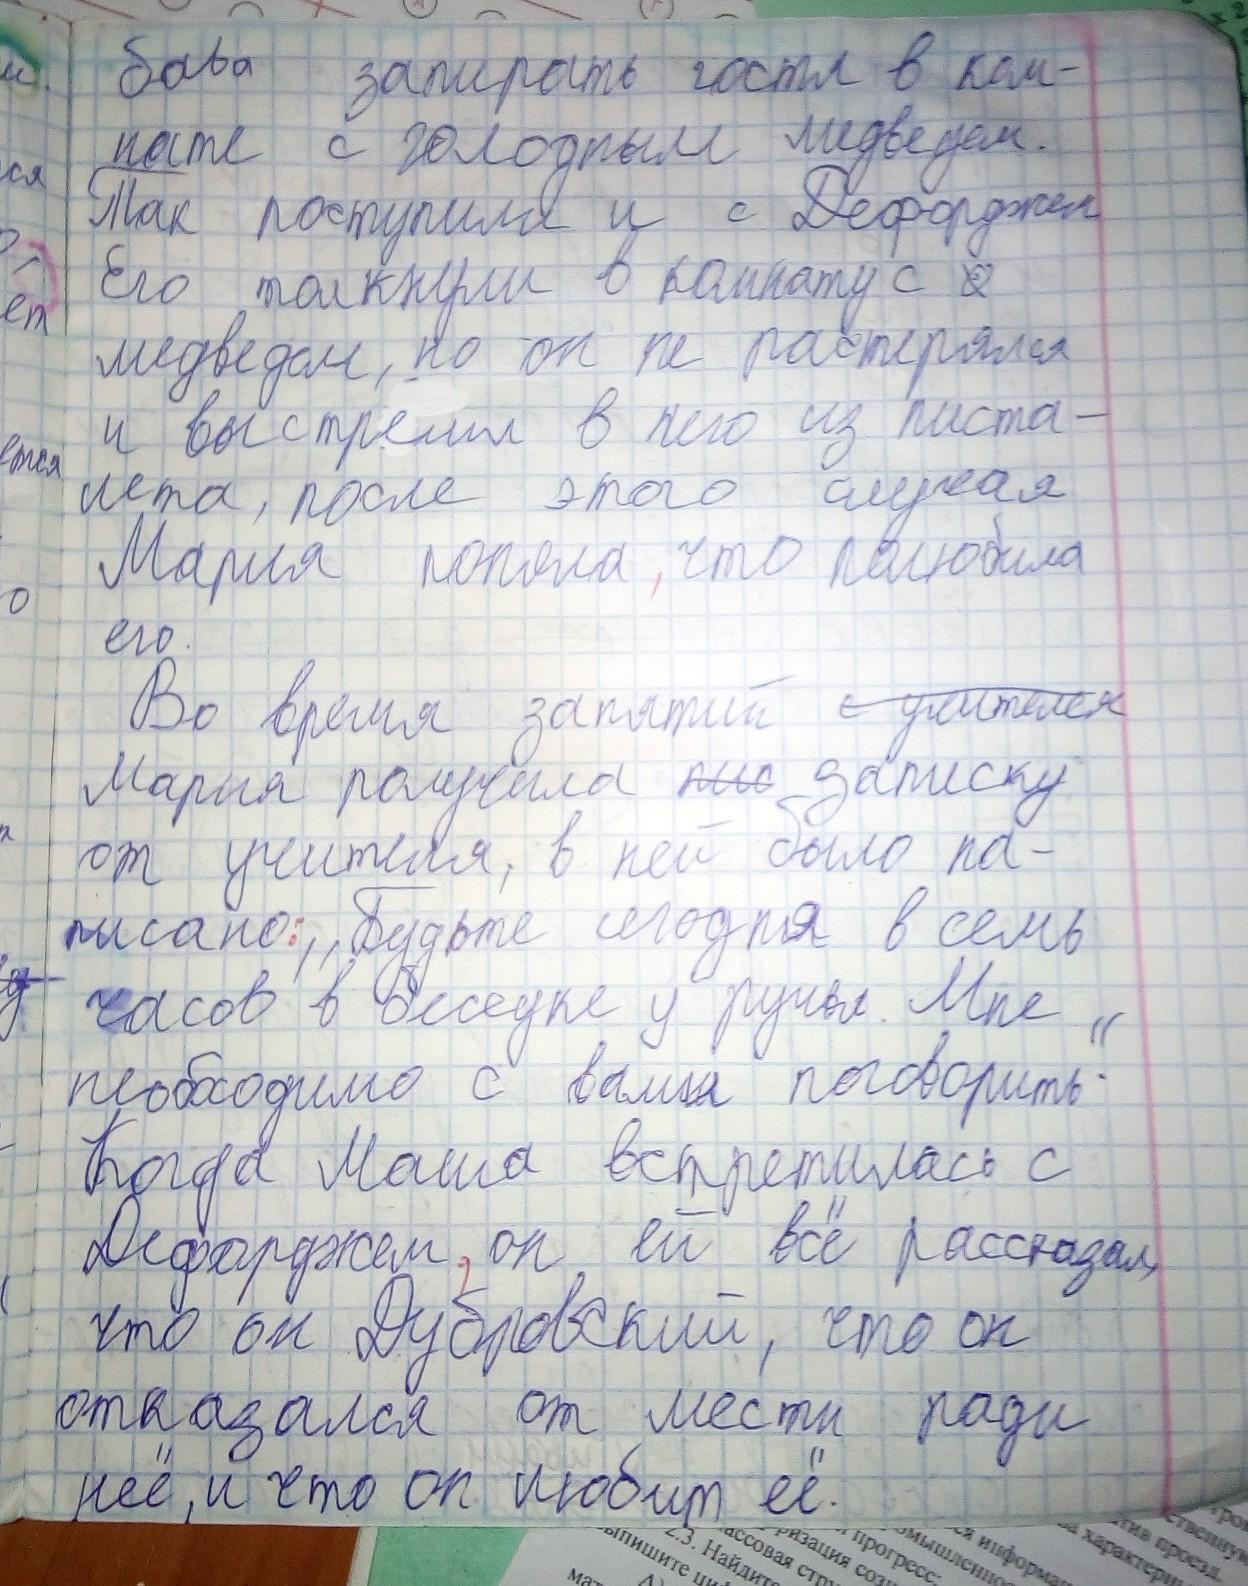 бава запирать гостя в ком-
нате с голодным медведем.
Так поступили и с Дефорджем
Его толкнули в комнату с
медведем, но он не растерялся
и выстрелил в него из писта-
лета, после этого случая
Мария поняла, что полюбила
его.
Во время занятий с учителем
Мария получила пис записку
от учителя, в ней было на-
писано: „Будьте сегодня в семь
часов в беседке у ручья. Мне
необходимо с вами поговорить".
Когда Маша встретилась с
Дефорджем, он ей всё рассказал,
что он Дубровский, что он
отказался от мести ради
неё, и что он любит её.
2.3. Найдите
прогресс;